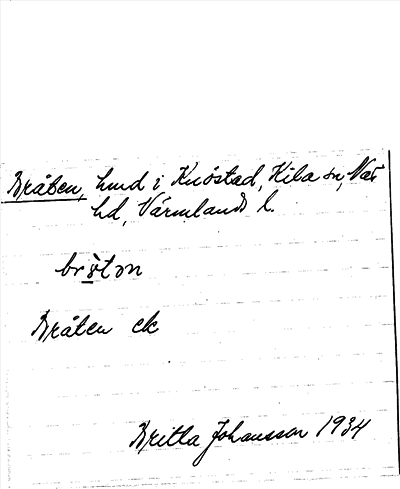 Bråten, hmd i Knöstad, Kila sn, Näs
hd, Värmlands l.
bròt ɔn
Bråten ek
Britta Johansson 1934